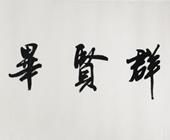 群賢畢